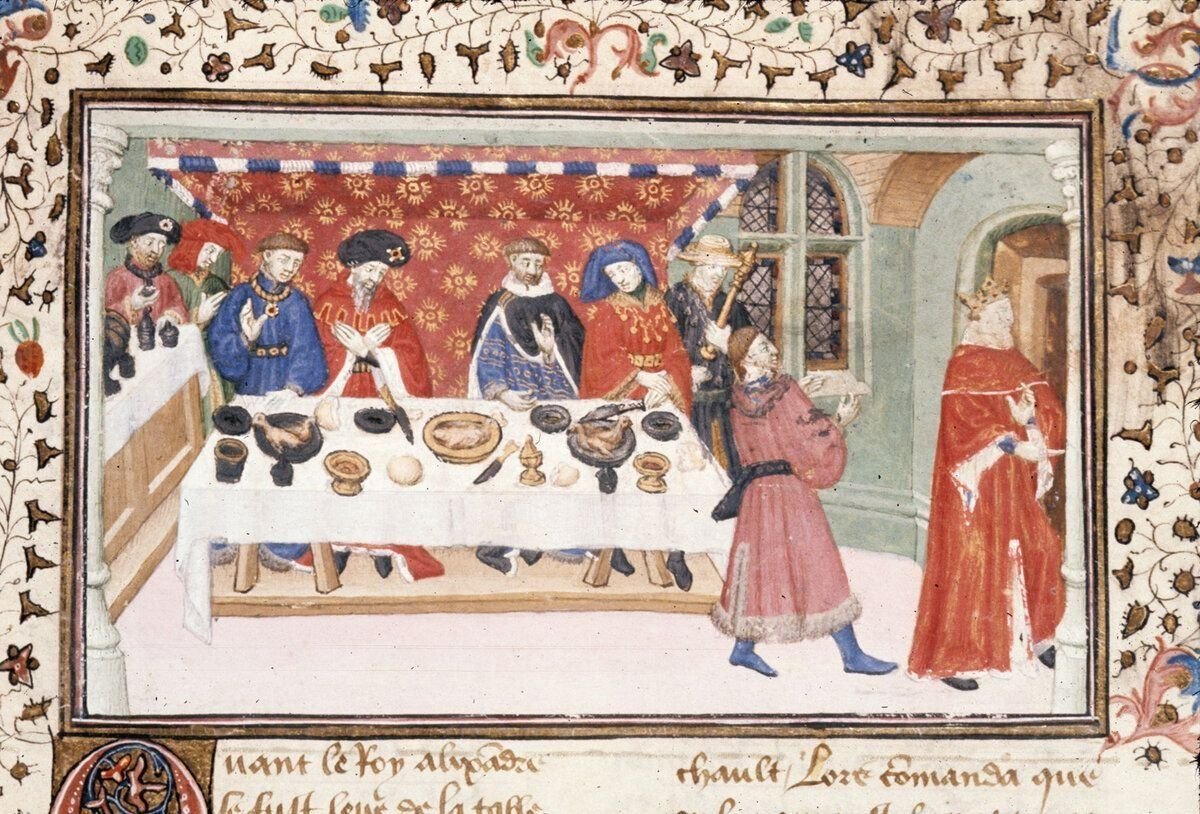 Quant le Roy alixãdre
se fust leue de la table
chault / Lors cõmanda que